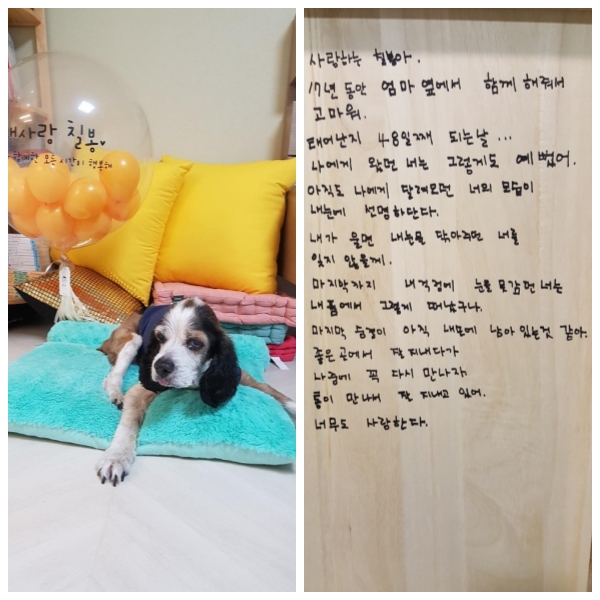 내사랑 칠봉♥
함께한 모든 시간이 행복해
사랑하는 칠봉아.
17년 동안 엄마 옆에서 함께 해줘서
고마워.
태어난지 48일째 되는날...
나에게 왔던 너는 그렇게도 예뻤어.
아직도 나에게 달려오던 너의 모습이
내눈에 선명하단다.
내가 울면 내눈물 닦아주던 너를
잊지 않을게.
마지막까지 내걱정에 눈을 못감던 너는
내품에서 그렇게 떠났구나.
마지막 숨결이 아직 내몸에 남아 있는것 같아.
좋은곳에서 잘 지내다가
나중에 꼭 다시 만나자.
통이 만나서 잘 지내고 있어.
너무도 사랑한다.